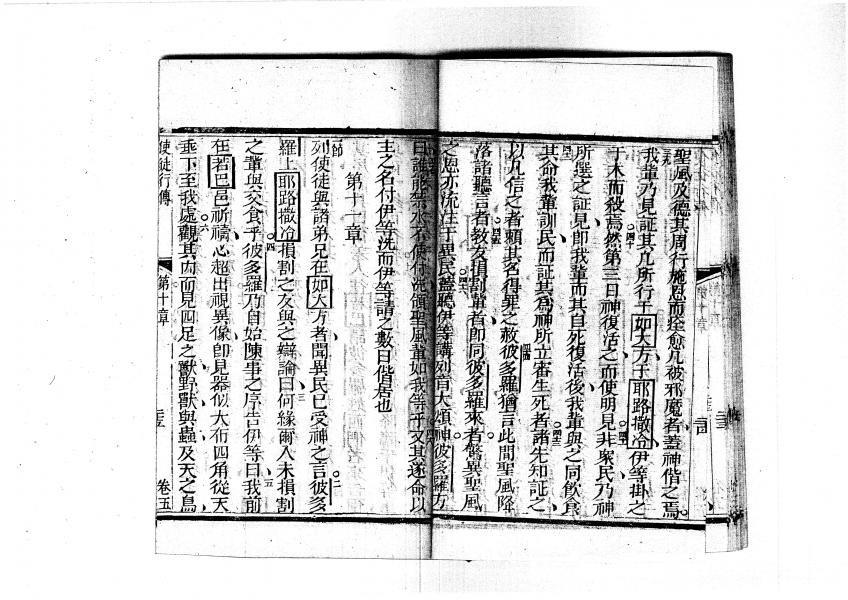 聖風及德其周行施恩而痊愈凡被邪魔者葢神偕之焉
三九我輩乃見証其凡所行于如大方于耶路撒冷伊等掛之
于木而殺焉四十然第三日神復活之而使明見四一非衆民乃神
所選之証見即我輩而其自死復活後我輩與之同飲食
四二其命我輩訓民而証其為神所立審生死者四三諸先知証之
以凡信之者賴其名得罪之赦四四彼多羅猶言此間聖風降
落諸聽言者四五教友損割輩者即同彼多羅來者驚異聖風
之恩亦流注于異民四六葢聽伊等講列音大頌神彼多羅方
曰誰能禁水不使付洗領聖風輩如我等乎又其遂命以
主之名付伊等洗而伊等請之數日偕居也
第十一章
一節列使徒與諸弟兄在如大方者聞異民已受神之言二彼多
羅上耶路撒冷損割之友與之辯論三曰何緣爾入未損割
之輩與交食乎四彼多羅乃自始陳事之序告伊等曰五我前
在若巴邑祈禱心超出視異像即見器似大布四角從天
垂下至我處六觀其內而見四足之獸野獸與蟲及天之鳥
使徒行傳
第十章
卷五